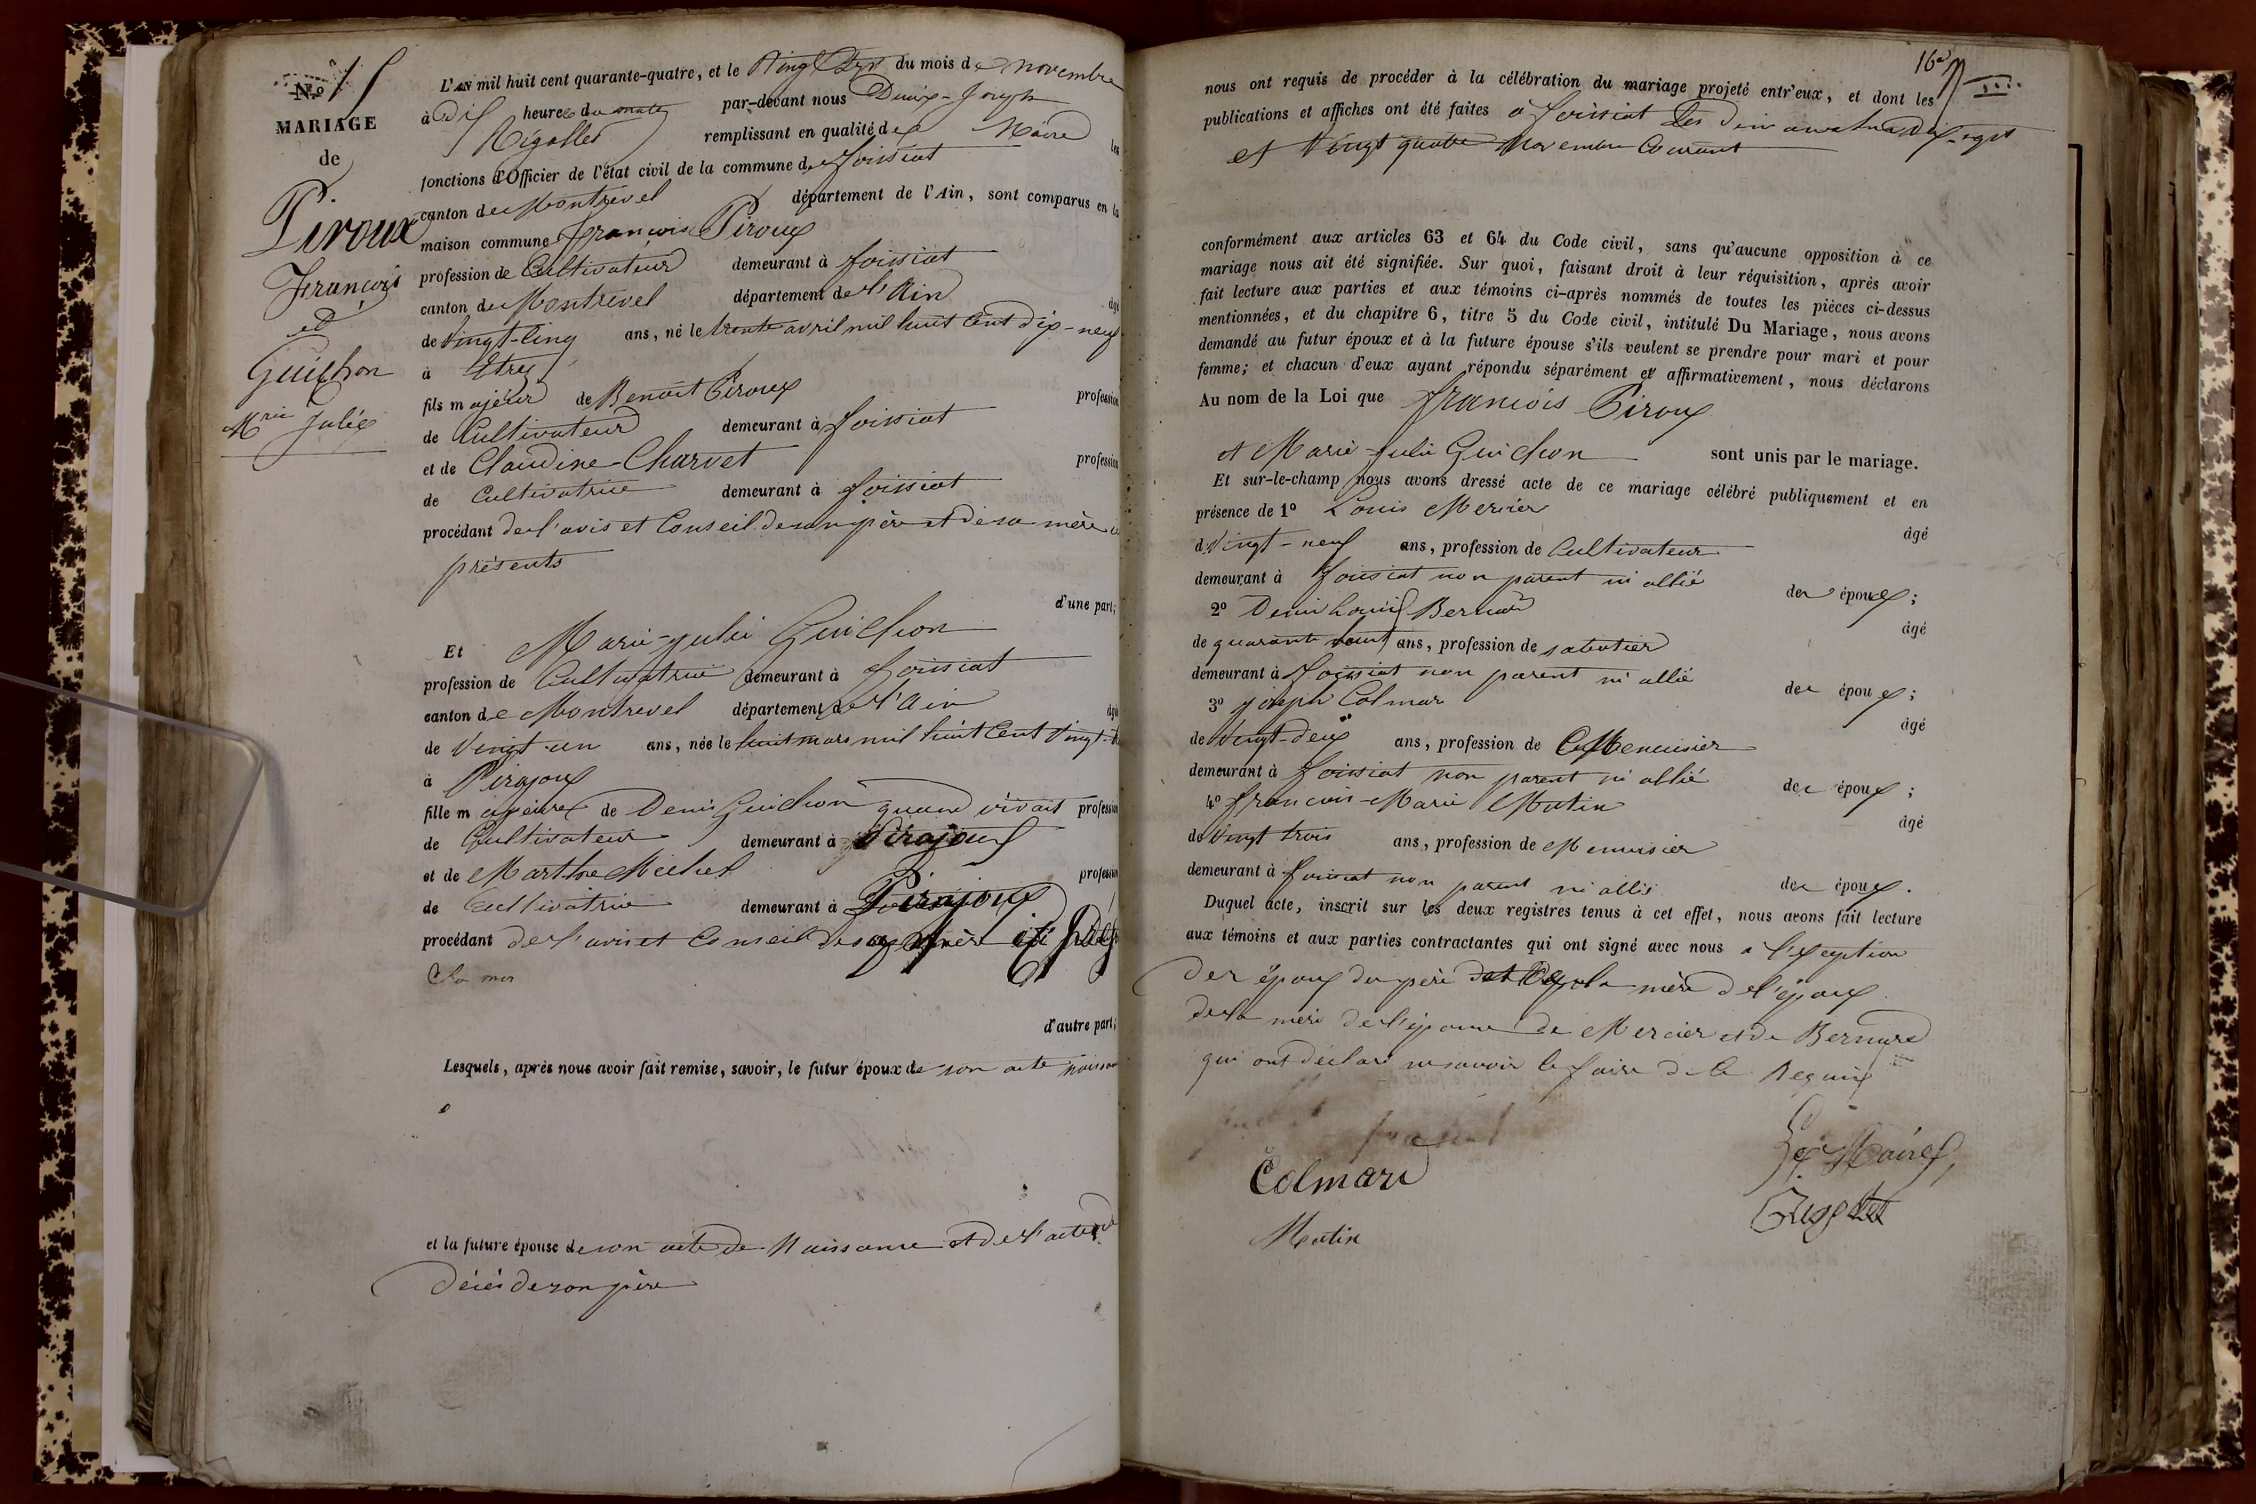 Nº 15
MARIAGE
de
Piroux
François
et
Guichon
Mrie Julie
L'AN mil huit cent quarante-quatre, et le Vingt Sept du mois de novembre
à dix heures du matin par-devant nous Denis-Joseph
Rigollet remplissant en qualité de Maire les
fonctions d'Officier de l'état civil de la commune de foissiat
canton de Montrevel département de l'Ain, sont comparus en la
maison commune françois Piroux
profession de Cultivateur demeurant à foissiat
canton de Montrevel département de l'Ain âgé
de Vingt-Cinq ans, né le trente avril mil huit Cent dix-neuf
à Etrez
fils majeur de Benoit Piroux profession
de Cultivateur demeurant à foissiat
et de Claudine Charvet profession
de Cultivatrice demeurant à foissiat
procédant de l'avis et Conseil de son père et de sa mère ici
présents
d'une part;
Et Marie-julie Guichon
profession de Cultivatrice demeurant à foissiat
canton de Montrevel département de l'Ain âgée
de Vingt un ans, née le huit mars mil huit Cent Vingt-
à Pirajoux
fille majeure de Denis Guichon quand vivait profession
de Cultivateur demeurant à Pirajoux
et de Marthe Michel profession
de Cultivatrice demeurant à Pirajoux
procédant de l'avis et Conseil de sa mère ici
d'autre part;
Lesquels, après nous avoir fait remise, savoir, le futur époux de son acte naissance
et la future épouse de son acte de Naissance et de l'acte de
décès de son père
nous ont requis de procéder à la célébration du mariage projeté entr'eux, et dont les
publications et affiches ont été faites à foissiat Les dimanches dix-sept
et Vingt quatre Novembre Courant
conformément aux articles 63 et 64 du Code civil, sans qu'aucune opposition à ce
mariage nous ait été signifiée. Sur quoi, faisant droit à leur réquisition, après avoir
fait lecture aux parties et aux témoins ci-après nommés de toutes les pièces ci-dessus
mentionnées, et du chapitre 6, titre 5 du Code civil, intitulé Du Mariage, nous avons
demandé au futur époux et à la future épouse s'ils veulent se prendre pour mari et pour
femme; et chacun d'eux ayant répondu séparément et affirmativement, nous déclarons
Au nom de la Loi que françois Piroux
et Marie-Julie Guichon sont unis par le mariage.
Et sur-le-champ nous avons dressé acte de ce mariage célébré publiquement et en
présence de 1º Louis Mercier âgé
de Vingt-neuf ans, profession de Cultivateur
demeurant à foissiat non parent ni allié des époux;
2º Denis Louis Bernard âgé
de quarante huit ans, profession de sabotier
demeurant à foissiat non parent ni allié des époux;
3º joseph Colmar âgé
de Vingt-deux ans, profession de Menuisier
demeurant à foissiat non parent ni allié des époux;
4º françois-Marie Mutin âgé
de Vingt trois ans, profession de Menuisier
demeurant à foissiat non parent ni allié des époux.
Duquel acte, inscrit sur les deux registres tenus à cet effet, nous avons fait lecture
aux témoins et aux parties contractantes qui ont signé avec nous à l'exception
des époux du père et de la mère de l'époux
de la mère de l'épouse de Mercier et de Bernard
qui ont déclaré ne savoir le faire de ce Requis
Colmar
Mutin
Le Maire
Rigollet